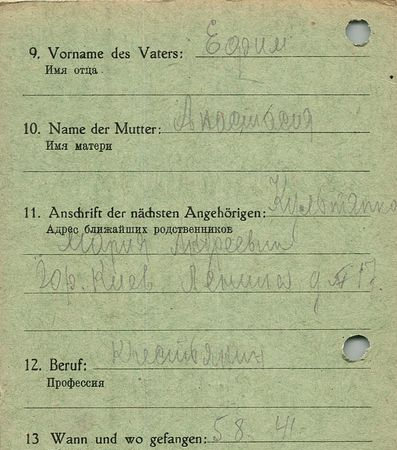 9. Vorname des Vaters: Ефим
Имя отца
10. Name der Mutter: Анастасия
Имя матери
11. Anschrift der nächsten Angehörigen:
Адрес ближайших родственников
Мария Андреевна
гор. Киев Ленина д № 17
12. Beruf: Крестьянин
Профессия
13 Wann und wo gefangen: 5 8. 41.